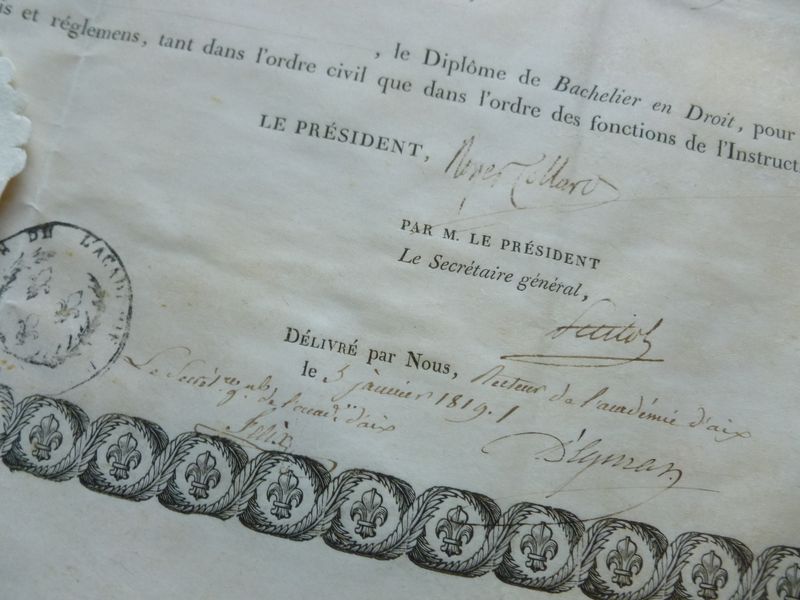 is et réglemens, tant dans l'ordre civil que dans l'ordre des fonctions de l'Instructi
, le Diplôme de Bachelier en Droit, pour
LE PRÉSIDENT, Royer Collard
PAR M. LE PRÉSIDENT
Le Secrétaire général,
DÉLIVRÉ par Nous, Recteur de l'académie d'aix
le 5 janvier 1819.
Le Secrét.re
de l'acad.ie d'aix
DE L'ACADÉMIE